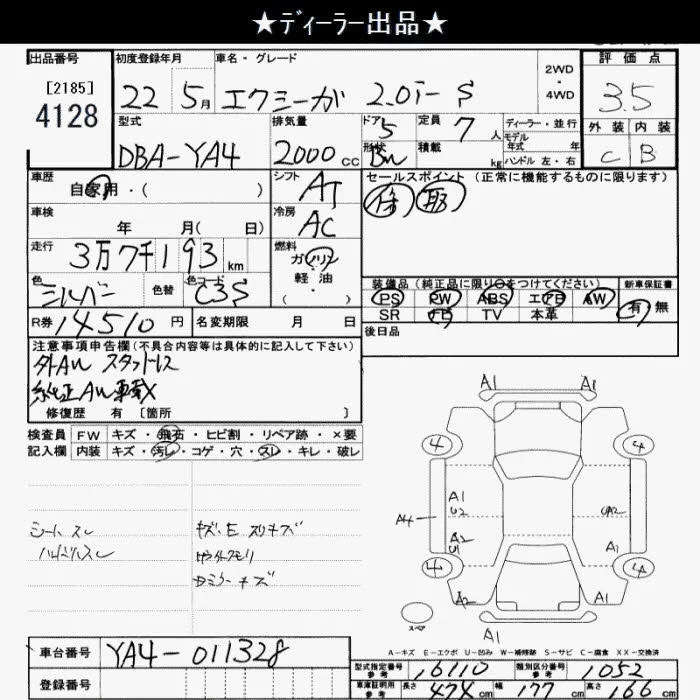 ★ディーラー出品★
出品番号 初度登録年月 車名・グレード 2WD・4WD 評価点
[2185]
4128 22 5月 エクシーガ 2.0i-S 3.5
型式 排気量 ドア 定員 ディーラー・並行 外装 内装
DBA-YA4 2000cc 5 7人 モデル年式 年 C B
形状 積載 kg ハンドル 左・右
車歴 シフト セールスポイント (正常に機能するものに限ります)
自家用・( ) AT 保 取
車検 冷房
年 月( 日) AC
走行 燃料
3万7千193km ガソリン・軽油 ( )
色 色替 色コード 装備品 (純正品に限り○をつけてください) 新車保証書
シルバー C3S PS PW ABS エアB AW 有 無
SR TV 本革
R券 14510円 名変期限 月 日 後日品
注意事項申告欄(不具合内容等は具体的に記入して下さい)
外AW スタッドレス
純正AW車載X
修復歴 有 〔箇所 〕
検査員 FW キズ・飛石・ヒビ割・リペア跡・×要
記入欄 内装 キズ・汚レ・コゲ・穴・スレ・キレ・破レ
A1 A1
4 4
A1
U2 UA2
A4
A2
U1 A1
4 4
A2 A1
スペア
A1
シートスレ
ハンドルスレ
キズ、E スリキズ
ドアミラーキズ
A-キズ E-エクボ U-凹み W-補修跡 S-サビ C-腐食 XX-交換済
車台番号 YA4-011328
型式指定番号 参考 16110 類別区分番号 参考 1052
登録番号
車庫証明用 参考 長さ 474cm 幅 177cm 高さ 166cm